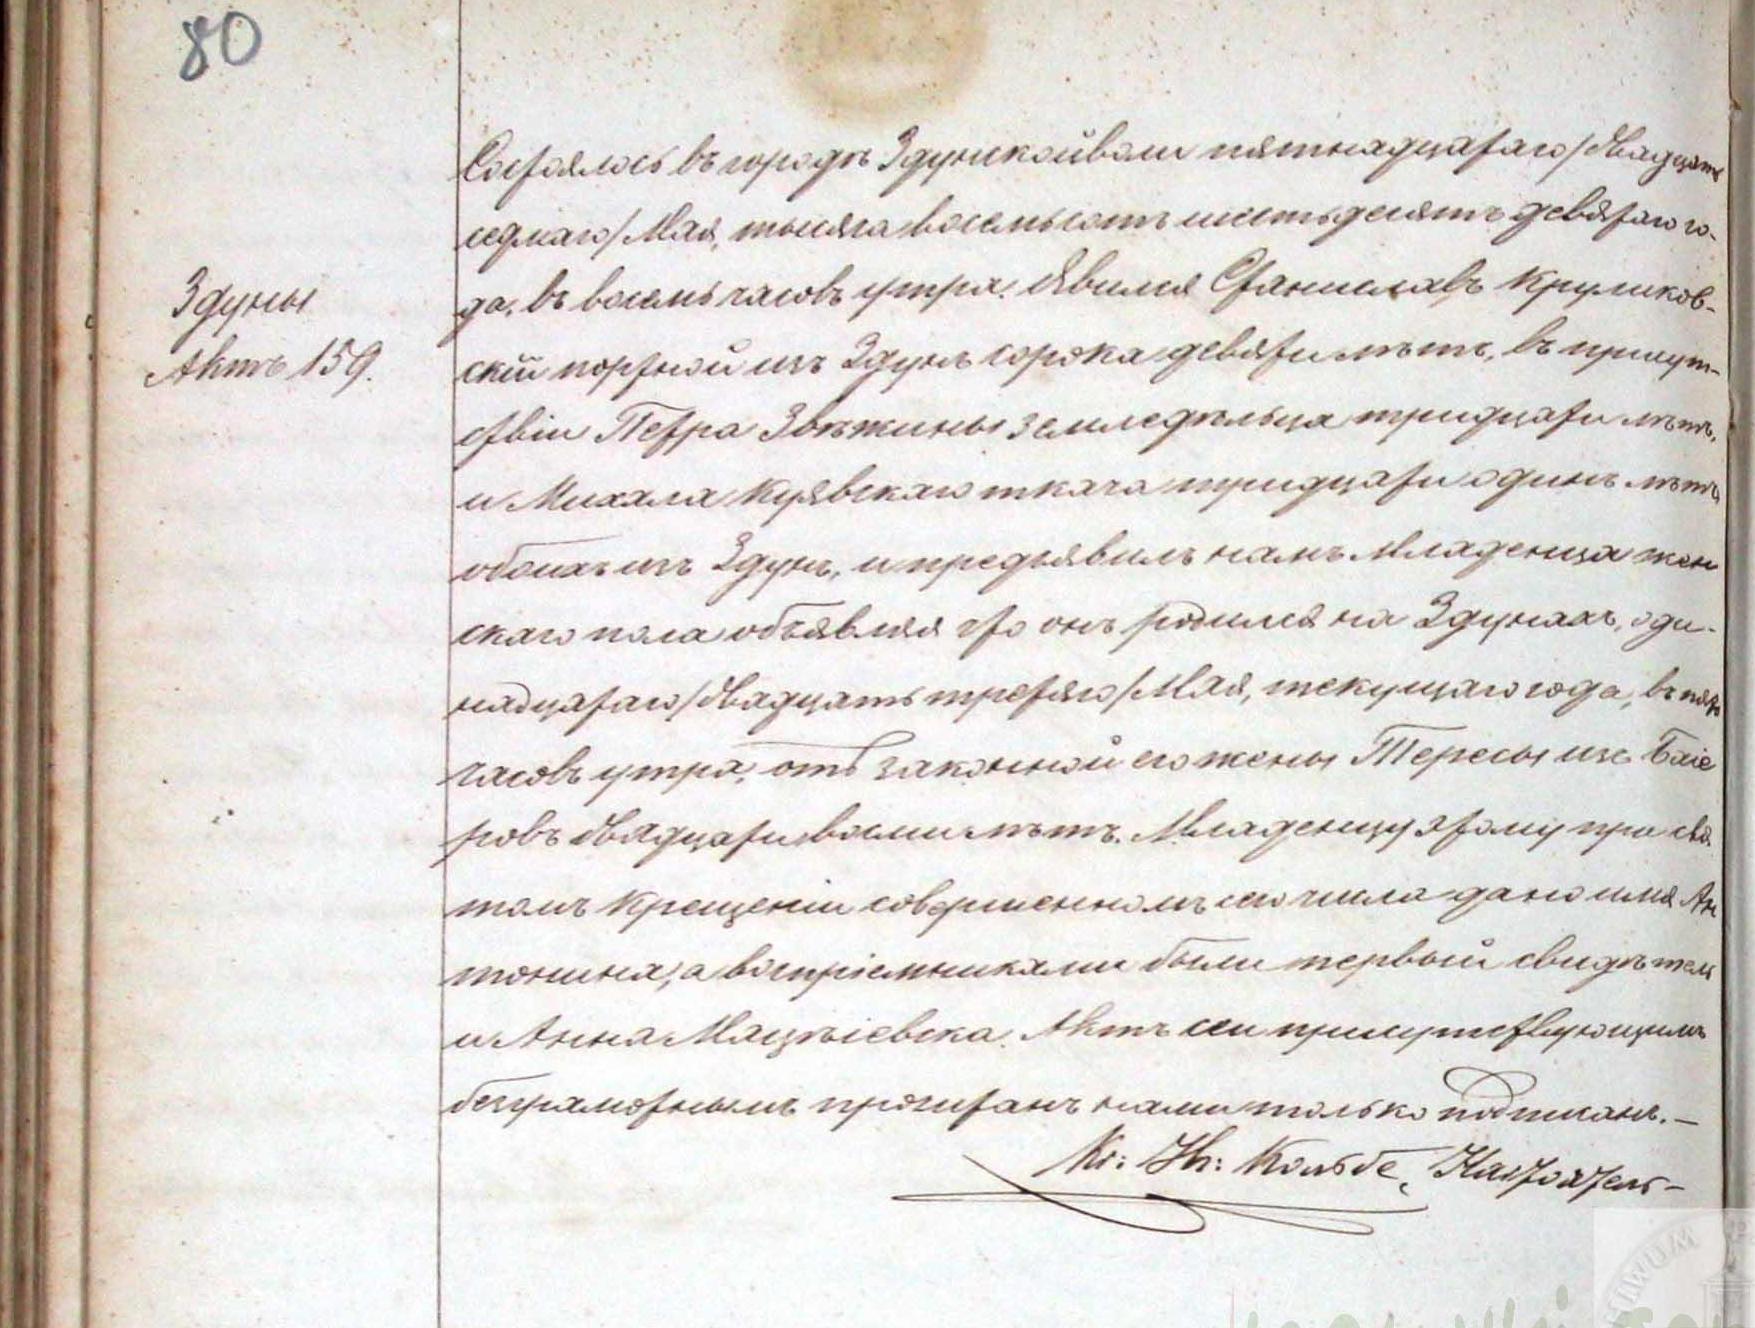 80
Здуны
Актъ 159.
Состоялось въ городѣ Здунской воли пятнадцатаго/двадцать
седмаго/Мая, тысяча восемьсотъ шестьдесятъ девятаго го-
да, въ восемь часовъ утра. Явился Станиславъ Круликов-
скій портной изъ Здунъ сорока девяти лѣтъ, въ присут-
ствіи Петра Звѣжины земледѣльца тридцати лѣтъ,
и Михала Куявскаго ткача тридцати одинъ лѣтъ
обоихъ изъ Здунъ, и предъявилъ намъ Младенца жен
скаго пола объявляя что онъ родился на Здунахъ, оди-
надцатаго/двадцать третяго/Мая, текущаго года, въ пять
часовъ утра, отъ законной его жены Тересы изъ Баіе
ровъ двадцати восьми лѣтъ. Младенцу этому при свя
томъ Крещеніи совершенномъ сего числа дано имя Ан
тонина, а воспріемниками были первый свидѣтель
и Анна Мацѣіевска. Актъ сей присутствующимъ
безграмотнымъ прочитанъ нами только подписанъ.—
Кс: Кольбе, Настоятель—